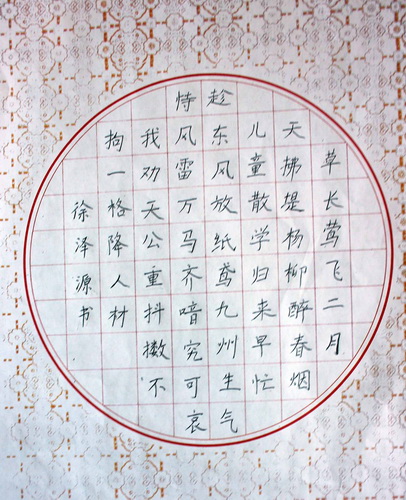 草长莺飞二月
天拂堤杨柳醉春烟
儿童散学归来早忙
趁东风放纸鸢九州生气
恃风雷万马齐喑究可哀
我劝天公重抖擞不
拘一格降人材
徐泽源书